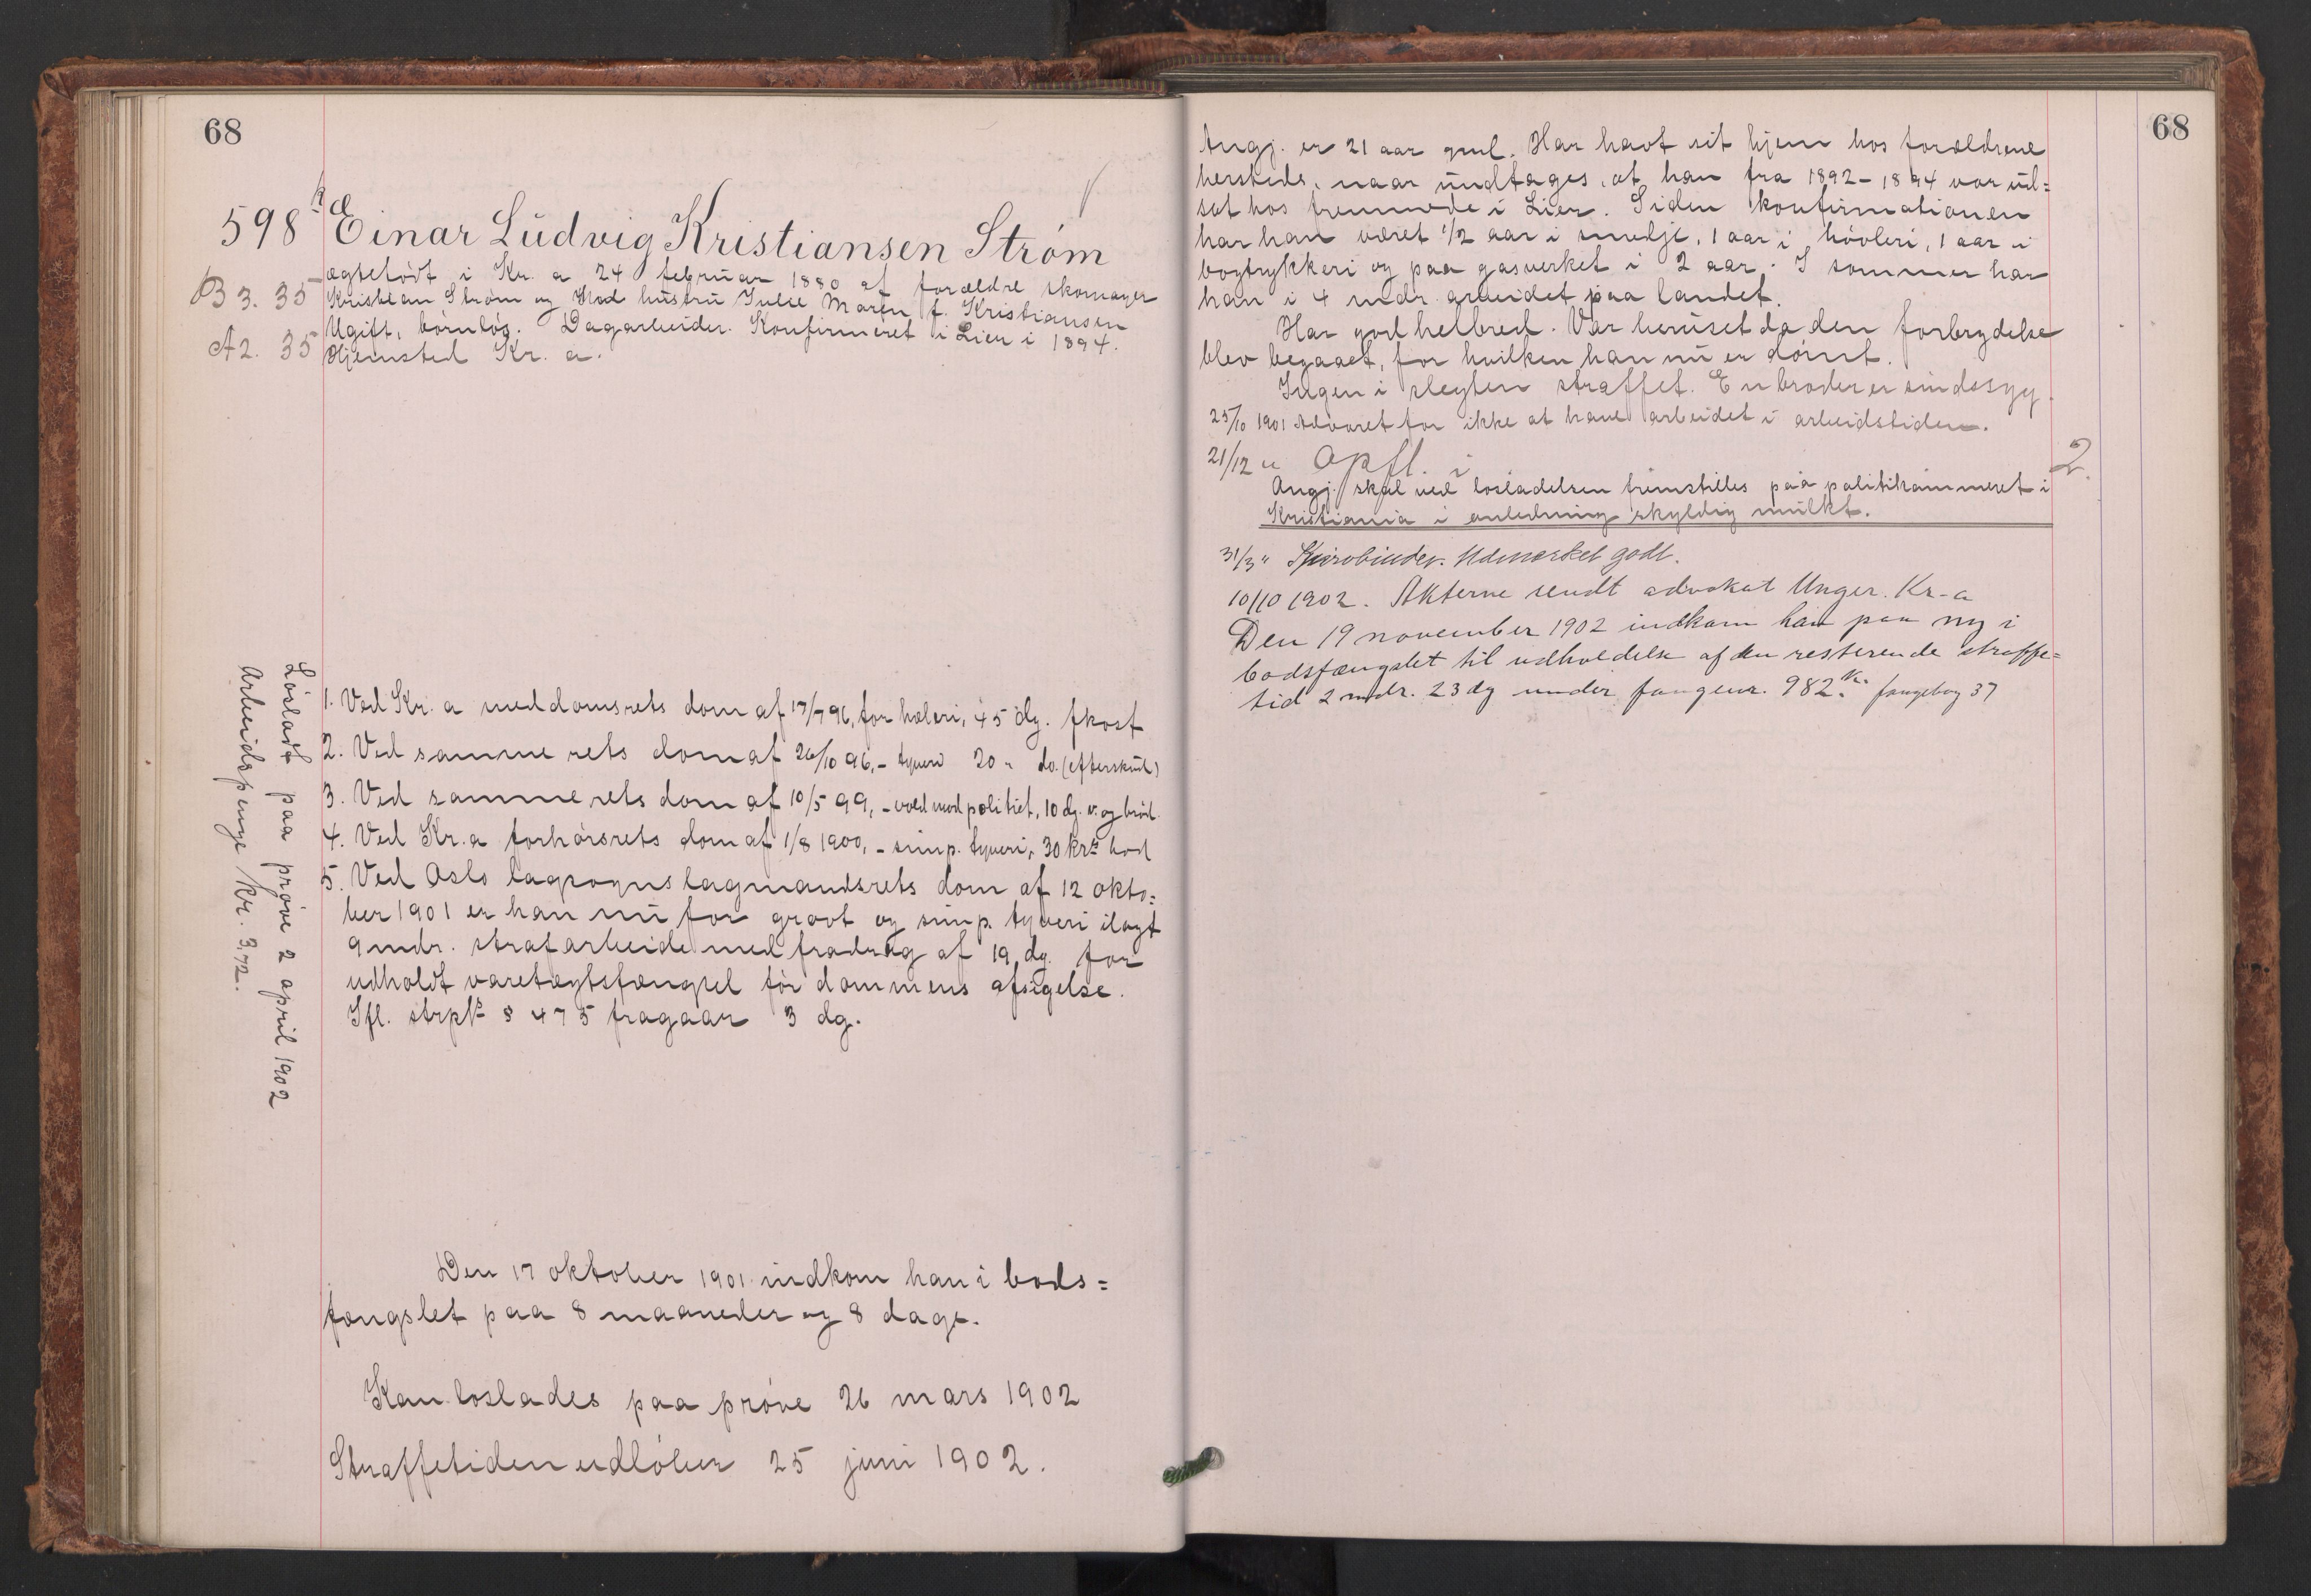 68
598 Einar Ludvig Kristiansen Strøm
B 3. 35
A 2. 35
ægtefødt i Kr. a 24 februar 1880 af forældre skomager
Kristian Strøm og hustru Julie Maren f. Kristiansen
Ugift, børnløs. Dagarbeider. Konfirmeret i Lier i 1894.
Hjemsted Kr. a.
1. Ved Kr. a meddomsrets dom af 17/7 96, for hæleri, 45 dg. fkost
2. Ved samme rets dom af 26/10 96, - tyveri 20 " do. (efterskud)
3. Ved samme rets dom af 10/5 99, - vold mod politiet, 10 dg. v. og brød.
4. Ved Kr. a forhørsrets dom af 1/8 1900, - simp. tyveri, 30 krs bod
5. Ved Oslo lagsogns lagmandsrets dom af 12 okto=
ber 1901 er han nu for grovt og simp. tyveri ilagt
9 mdr. strafarbeide med fradrag af 19 dg. for
udholdt varetægtsfængsel før dommens afsigelse.
Ifl. strpl. § 475 fragaar 3 dg.
Løsladt paa prøve 2 april 1902
Arbeidspenge Kr. 3,72.
Den 17 oktober 1901 indkom han i bods=
fængslet paa 8 maaneder og 8 dage.
Kan løslades paa prøve 26 mars 1902
Straffetiden udløber 25 juni 1902.
68
Angj. er 21 aar gml. Har havt sit hjem hos forældrene
hersteds, naar undtages, at han fra 1892-1894 var ud=
sat hos fremmede i Lier. Siden konfirmationen
har han været 1/2 aar i smedje, 1 aar i høvleri, 1 aar i
bogtrykkeri og paa gasverket i 2 aar. I sommer har
han i 4 mdr. arbeidet paa landet.
Har god helbred. Var beruset da den forbrydelse
blev begaaet, for hvilken han nu er dømt.
Ingen i slegten straffet. En broder er sindssyg.
25/10 1901 Advaret for ikke at have arbeidet i arbeidstiden.
21/12 " Opfl. i 2.
Angj. skal ved løsladelsen fremstilles paa politikammeret i
Kristiania i anledning skyldig mulkt.
31/3 " Udmerket godt.
10/10 1902. Akterne sendt advokat Unger. Kr-a
Den 19 november 1902 indkom han paa ny i
bodsfængslet til udholdelse af den resterende straffe=
tid 2 mdr. 23 dg under fangenr. 982. fangebog 37